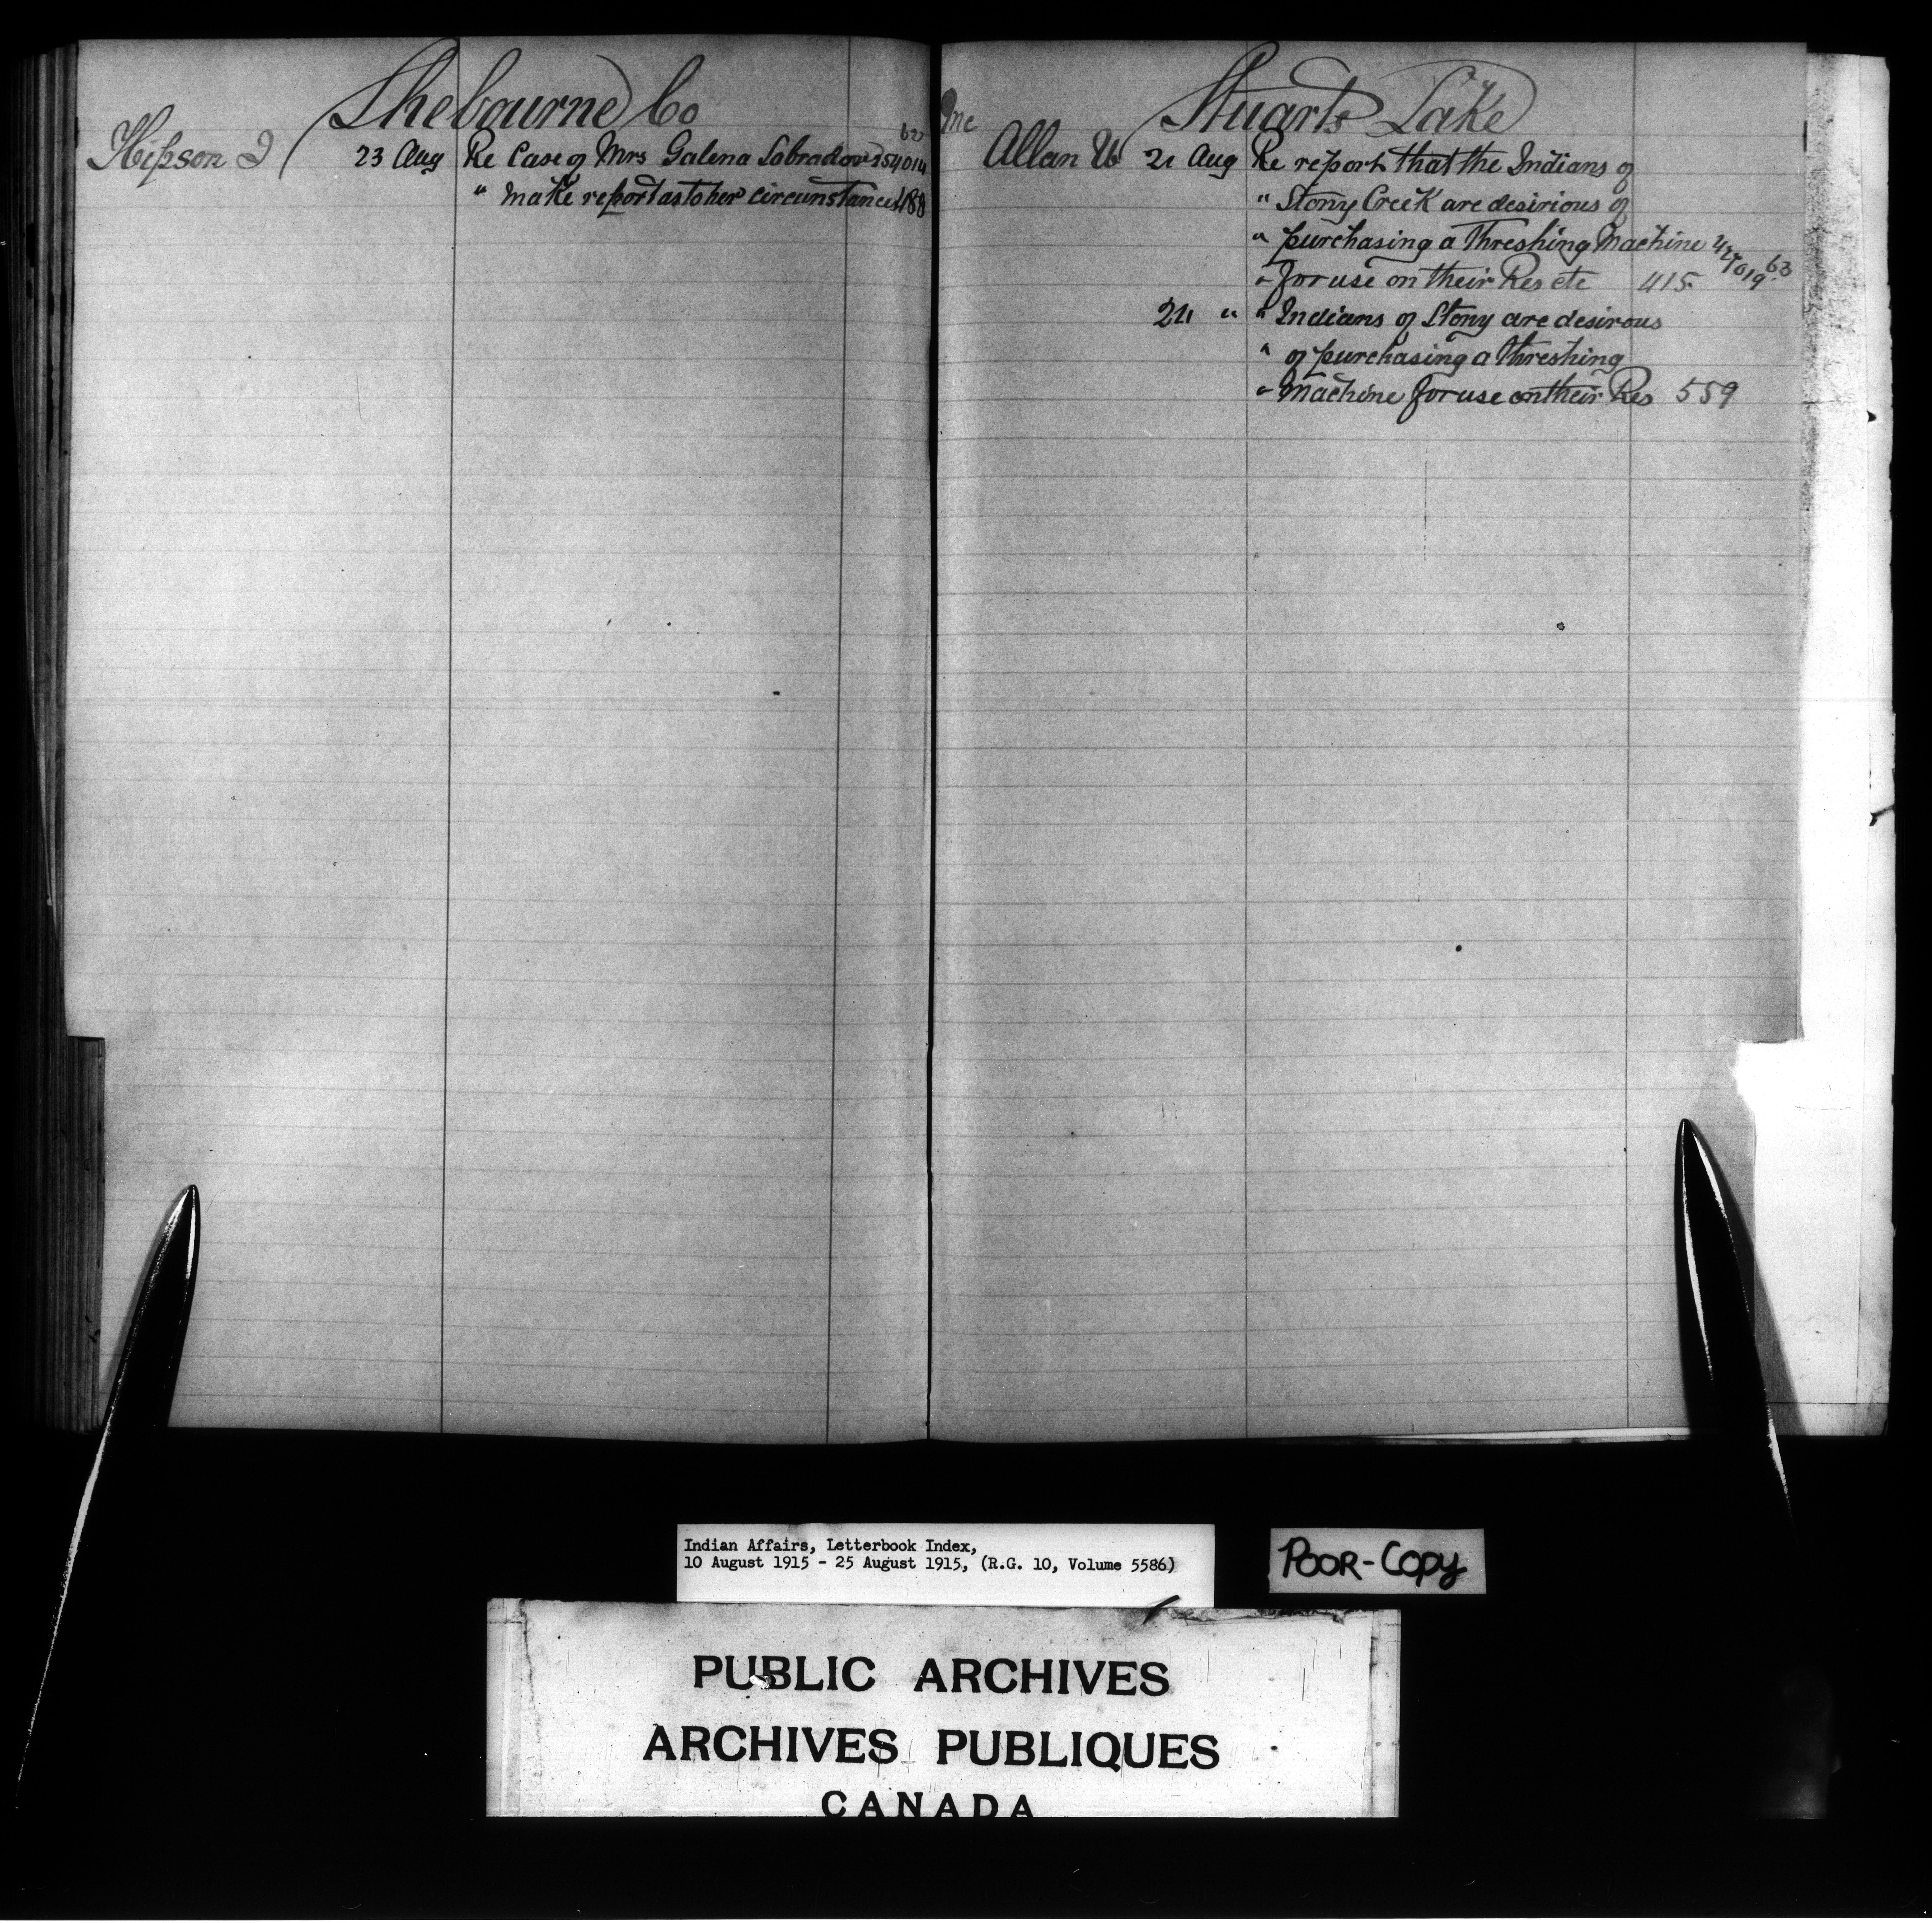 Shebourne Co
Hipson J 23 Aug Re Case of Mrs Galena Labradore 254014
" Make report as to her circumstances 488
Stuarts Lake
Mc Allan W 21 Aug Re report that the Indians of
" Stony Creek are desirious of
" purchasing a Threshing Machine
" for use on their Res etc 415
" " Indians of Stony are desirous
" of purchasing a threshing
" Machine for use on their Res 559
Indian Affairs, Letterbook Index,
10 August 1915 - 25 August 1915, (R.G. 10, Volume 5586)
POOR-COPY
PUBLIC ARCHIVES
ARCHIVES PUBLIQUES
CANADA